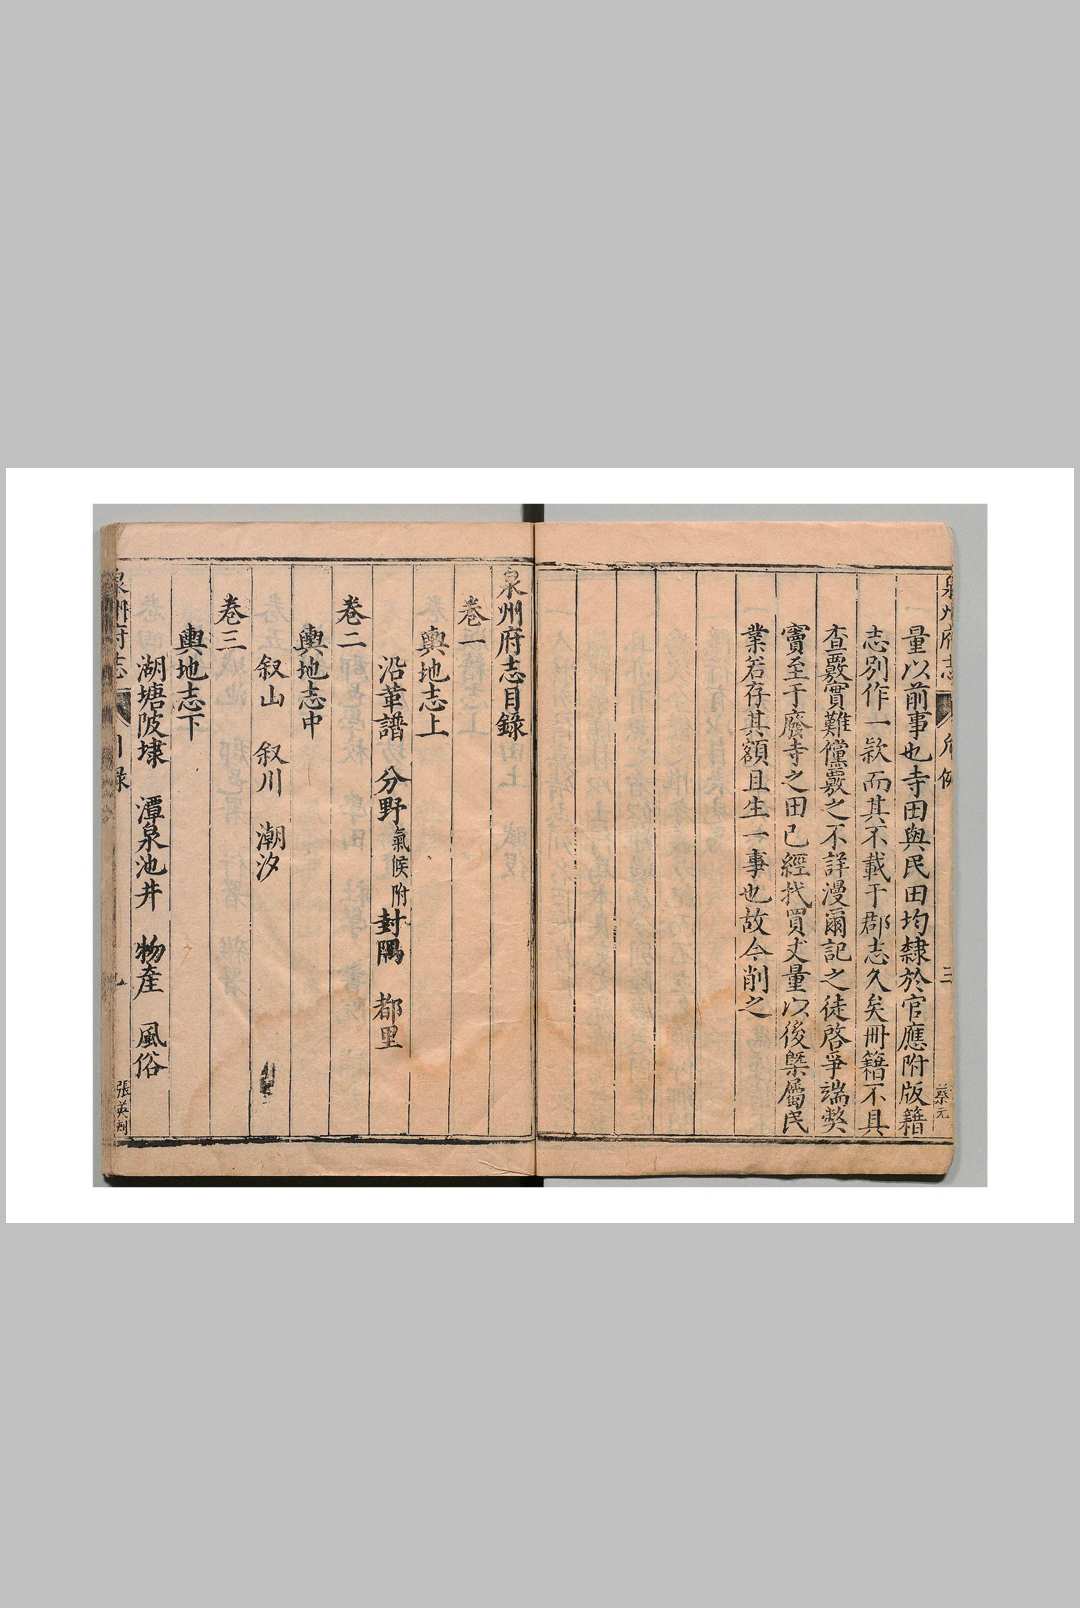 泉州府志 凡例 三 蔡元
量以前事也寺田與民田均隸於官應附版籍
志別作一欵而其不載于郡志久矣冊籍不具
查覈實難儻覈之不詳漫爾記之徒啓爭端弊
竇至于廢寺之田已經找買丈量以後槩屬民
業若存其額且生一事也故今削之
泉州府志目録
卷一
輿地志上
沿革譜 分野氣候附 封隅 都里
卷二
輿地志中
叙山 叙川 潮汐
卷三
輿地志下
湖塘陂埭 潭泉池井 物產 風俗
泉州府志 目録 張英刻